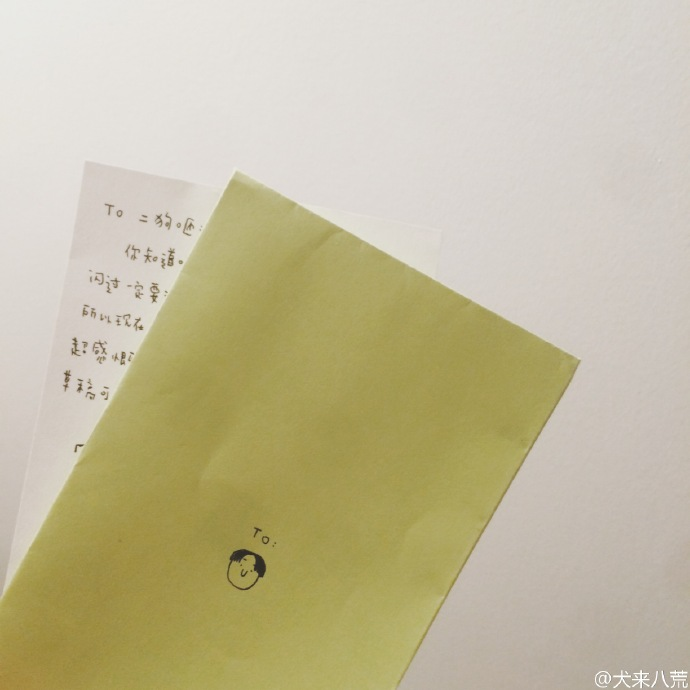 To 二狗呃:
你知道
闪过一定要
所以现在
超感恨
草稿可
To:
@犬来八荒